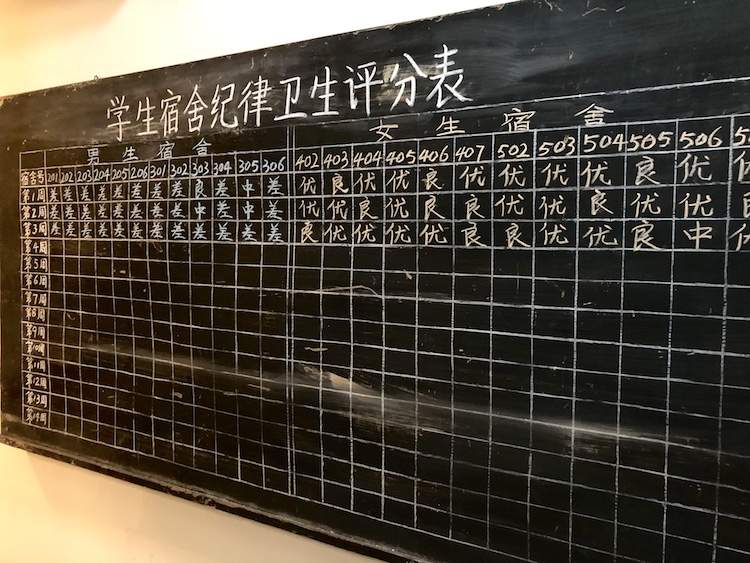 学生宿舍纪律卫生评分表
男生宿舍 女生宿舍
宿舍号 201 202 203 204 205 206 301 302 303 304 305 306 402 403 404 405 406 407 502 503 504 505 506
第1周 差 差 差 差 差 差 差 差 良 差 中 差 优 良 优 优 良 优 优 优 优 良 优 优
第2周 差 差 差 差 差 差 差 差 中 差 中 差 优 优 良 优 良 良 优 优 良 优 优
第3周 差 差 差 差 差 差 差 差 差 差 差 差 良 优 优 优 优 良 良 优 优 良 中
第4周
第5周
第6周
第7周
第8周
第9周
第10周
第11周
第12周
第13周
第14周